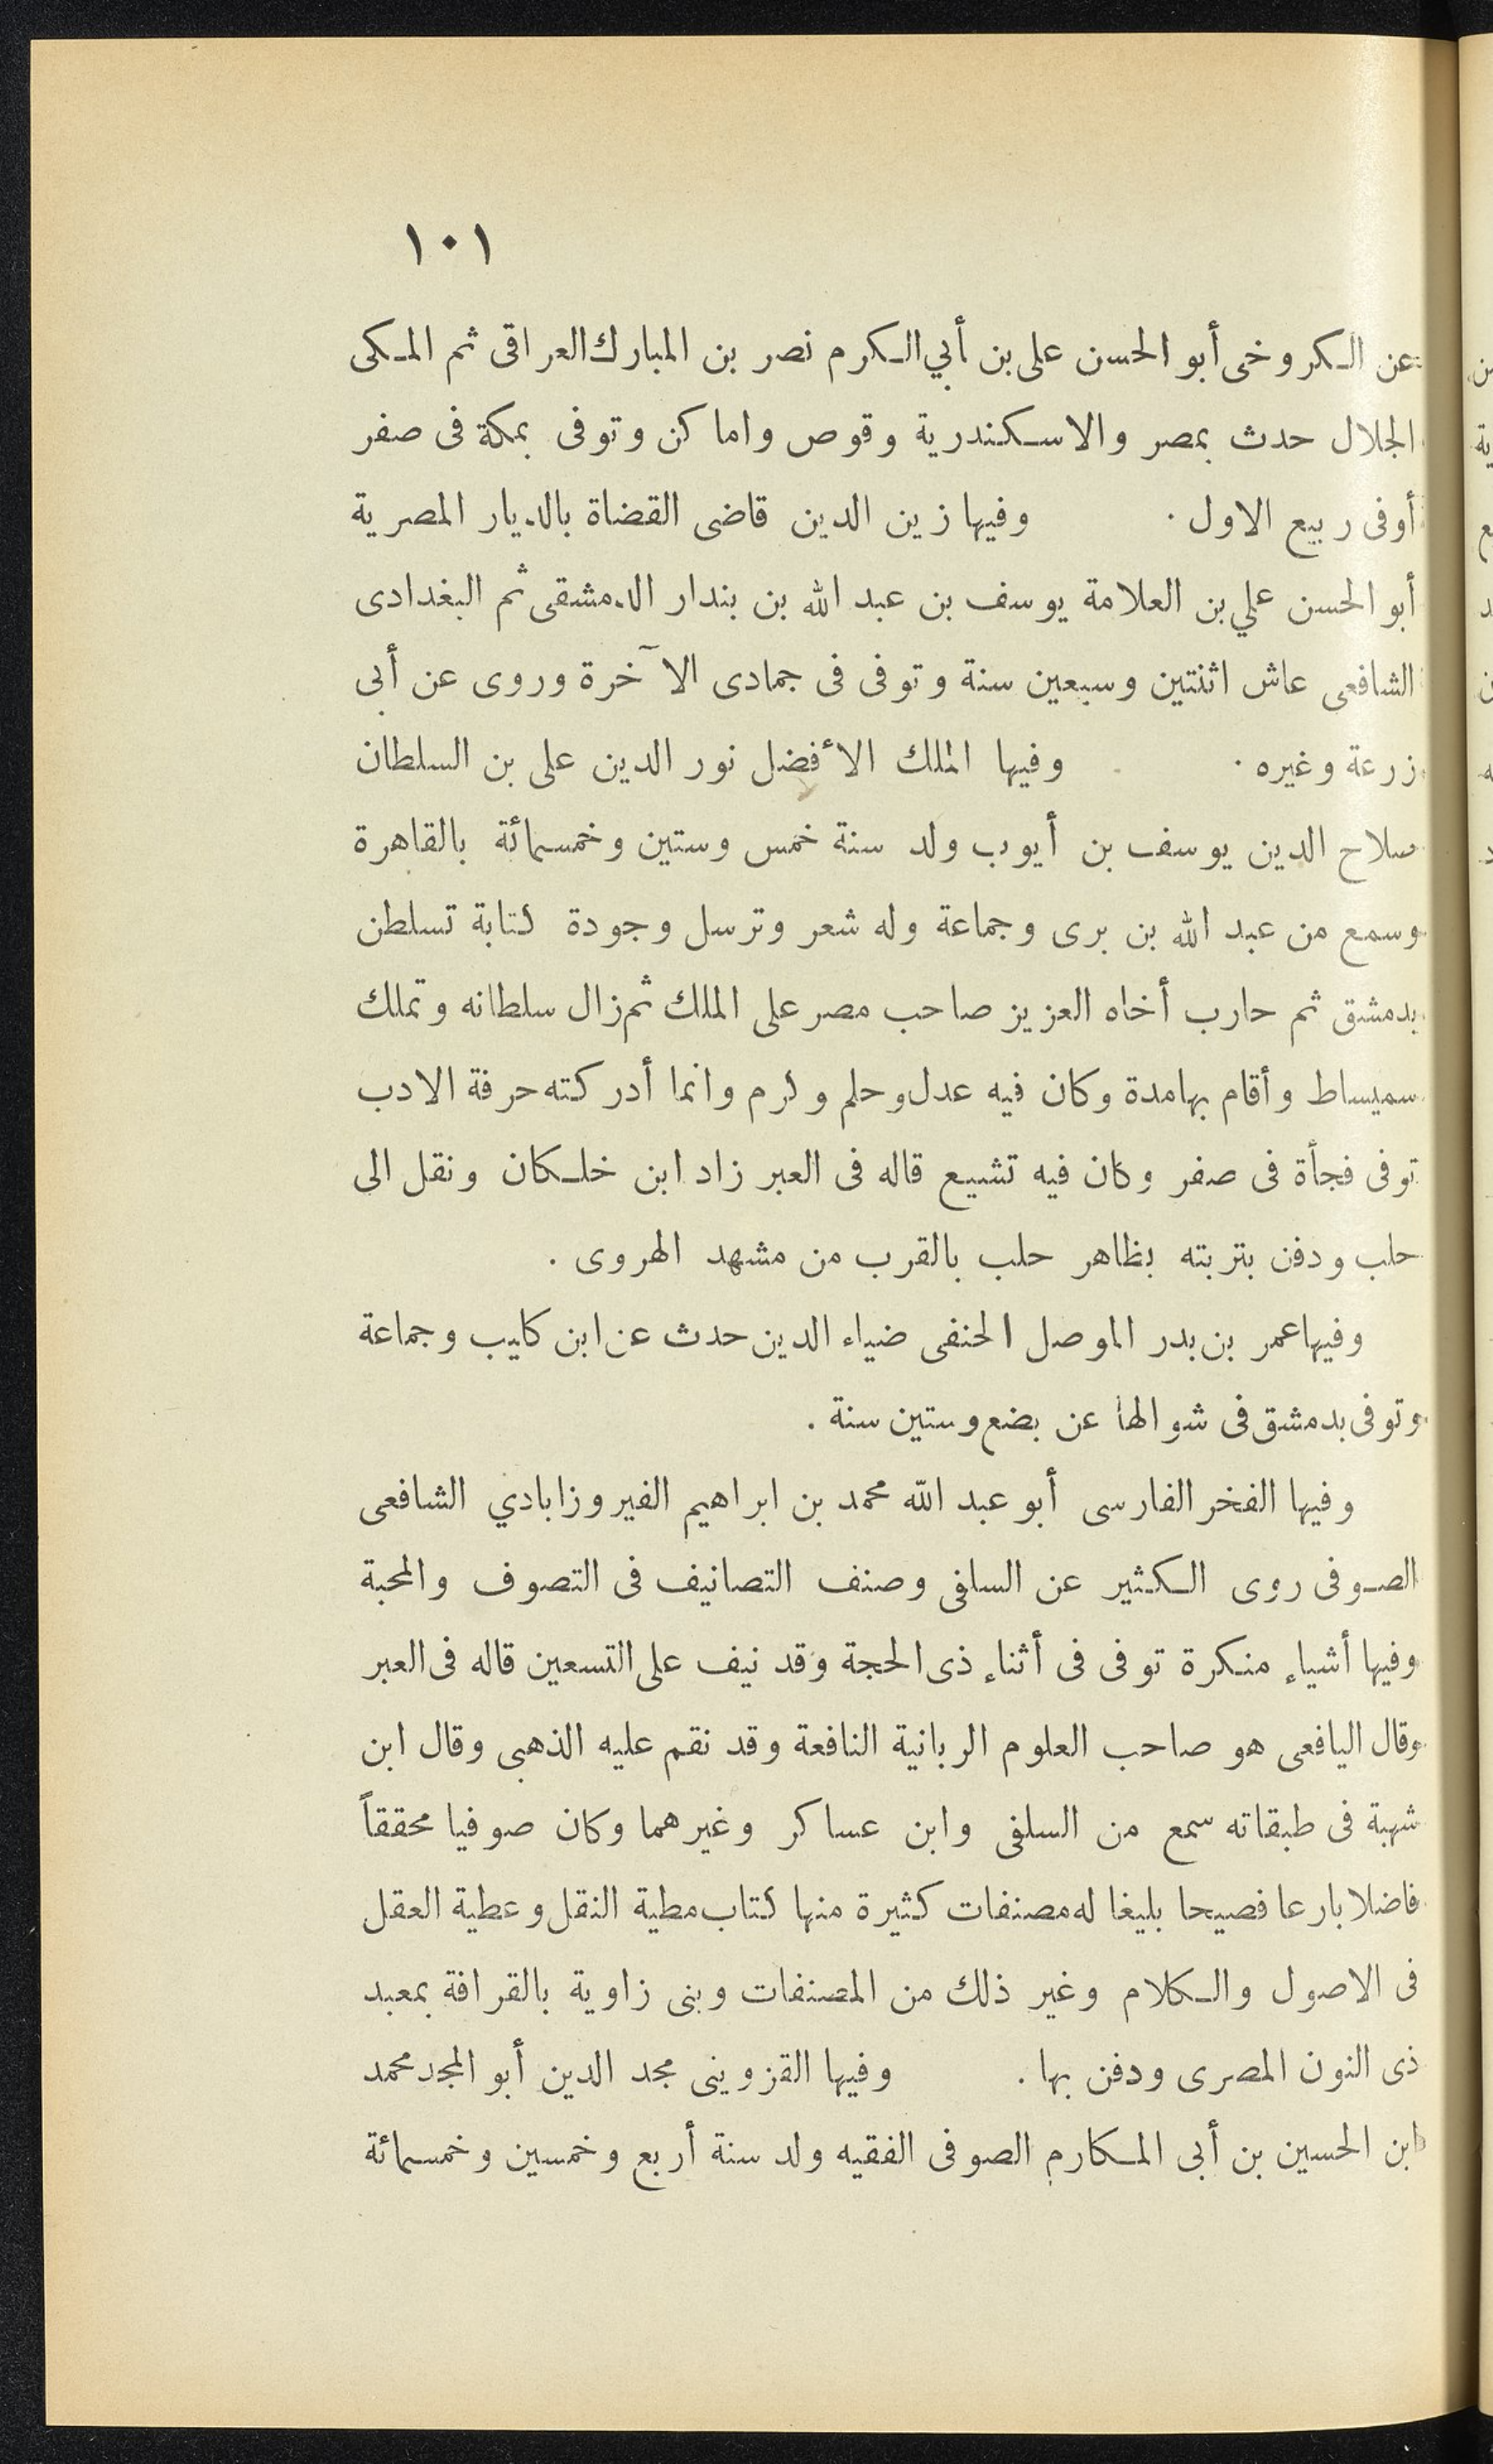 ١٠١
عن الكروخى أبو الحسن على بن أبي الكرم نصر بن المبارك العراقى ثم المكى
الجلال حدث بمصر والاسكندرية وقوص واماكن وتوفى بمكة فى صفر
أوفى ربيع الاول . وفيها زين الدين قاضى القضاة بالديار المصرية
أبو الحسن علي بن العلامة يوسف بن عبد الله بن بندار الدمشقى ثم البغدادى
الشافعى عاش اثنتين وسبعين سنة وتوفى فى جمادى الآخرة وروى عن أبى
زرعة وغيره . وفيها الملك الأفضل نور الدين على بن السلطان
صلاح الدين يوسف بن أيوب ولد سنة خمس وستين وخمسمائة بالقاهرة
وسمع من عبد الله بن برى وجماعة وله شعر وترسل وجودة كتابة تسلطن
بدمشق ثم حارب أخاه العزيز صاحب مصر على الملك ثم زال سلطانه وتملك
سميساط وأقام بهامدة وكان فيه عدل وحلم وكرم وانما أدركته حرفة الادب
توفى فجأة فى صفر وكان فيه تشيع قاله فى العبر زاد ابن خلكان ونقل الى
حلب ودفن بتربته بظاهر حلب بالقرب من مشهد الهروى .
وفيها عمر بن بدر الموصل الحنفى ضياء الدين حدث عن ابن كليب وجماعة
وتوفى بدمشق فى شوالها عن بضع وستين سنة .
وفيها الفخر الفارسى أبو عبد الله محمد بن ابراهيم الفيروزابادي الشافعى
الصوفى روى الكثير عن السلفى وصنف التصانيف فى التصوف والمحبة
وفيها أشياء منكرة توفى فى أثناء ذى الحجة وقد نيف على التسعين قاله فى العبر
وقال اليافعى هو صاحب العلوم الربانية النافعة وقد نقم عليه الذهبى وقال ابن
شهبة فى طبقاته سمع من السلفى وابن عساكر وغيرهما وكان صوفيا محققاً
فاضلا بارعا فصيحا بليغا له مصنفات كثيرة منها كتاب مطية النقل وعطية العقل
فى الاصول والكلام وغير ذلك من المصنفات وبنى زاوية بالقرافة بمعبد
ذى النون المصرى ودفن بها . وفيها القزوينى مجد الدين أبو المجد محمد
ابن الحسين بن أبى المكارم الصوفى الفقيه ولد سنة أربع وخمسين وخمسمائة